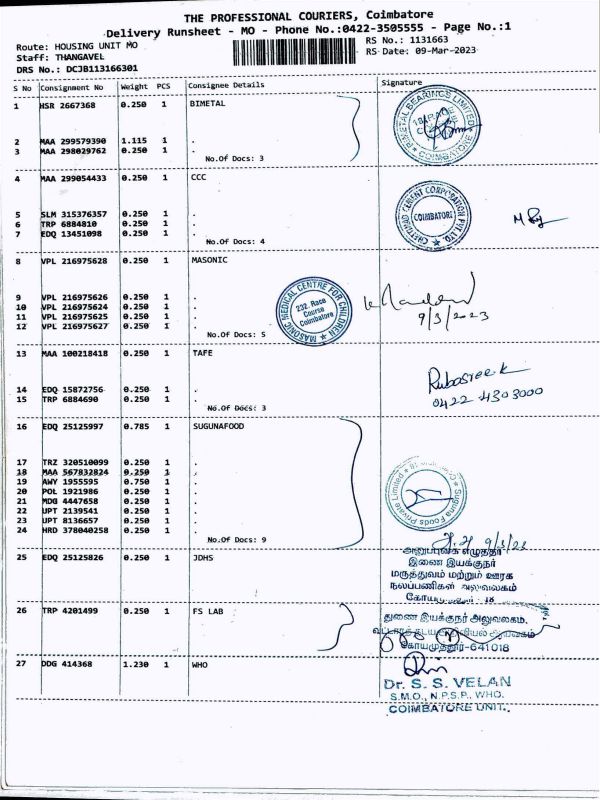 THE PROFESSIONAL COURIERS, Coimbatore
Delivery Runsheet - MO - Phone No.:0422-3505555 - Page No.:1
Route: HOUSING UNIT MO
RS No.: 1131663
Staff: THANGAVEL
RS Date: 09-Mar-2023
DRS No.: DCJB113166301
S No Consignment No Weight PCS Consignee Details Signature
1 HSR 2667368 0.250 1 BIMETAL
BIMETAL BEARINGS LIMITED COIMBATORE
2 MAA 299579390 1.115 1 .
3 MAA 298029762 0.250 1 .
No.Of Docs: 3
4 MAA 299054433 0.250 1 CCC
CHETTINAD CEMENT CORPORATION PVT LTD. COIMBATORE
5 SLM 315376357 0.250 1 .
6 TRP 6884810 0.250 1 .
7 EDQ 13451098 0.250 1 .
No.Of Docs: 4
8 VPL 216975628 0.250 1 MASONIC
MASONIC MEDICAL CENTRE FOR CHILDREN
232, Race Course Coimbatore
9 VPL 216975626 0.250 1 .
10 VPL 216975624 0.250 1 .
11 VPL 216975625 0.250 1 .
12 VPL 216975627 0.250 1 .
9/3/2023
No.Of Docs: 5
13 MAA 100218418 0.250 1 TAFE
Rubasree.k
14 EDQ 15872756 0.250 1 .
15 TRP 6884690 0.250 1 .
0422 4303000
No.Of Docs: 3
16 EDQ 25125997 0.785 1 SUGUNAFOOD
Suguna Foods Private Limited
17 TRZ 320510099 0.250 1 .
18 MAA 567832824 0.250 1 .
19 AWY 1955595 0.750 1 .
20 POL 1921986 0.250 1 .
21 MDG 4447658 0.250 1 .
22 UPT 2139541 0.250 1 .
23 UPT 8136657 0.250 1 .
24 HRD 378040258 0.250 1 .
No.Of Docs: 9
9/3/23
25 EDQ 25125826 0.250 1 JDHS
இணை இயக்குநர்
மருத்துவம் மற்றும் ஊரக
நலப்பணிகள் அலுவலகம்
26 TRP 4201499 0.250 1 FS LAB
துணை இயக்குநர் அலுவலகம்,
கோயமுத்தூர்-641018
27 DDG 414368 1.230 1 WHO
Dr. S. S. VELAN
S.M.O., N.P.S.P., WHO.
COIMBATORE UNIT.